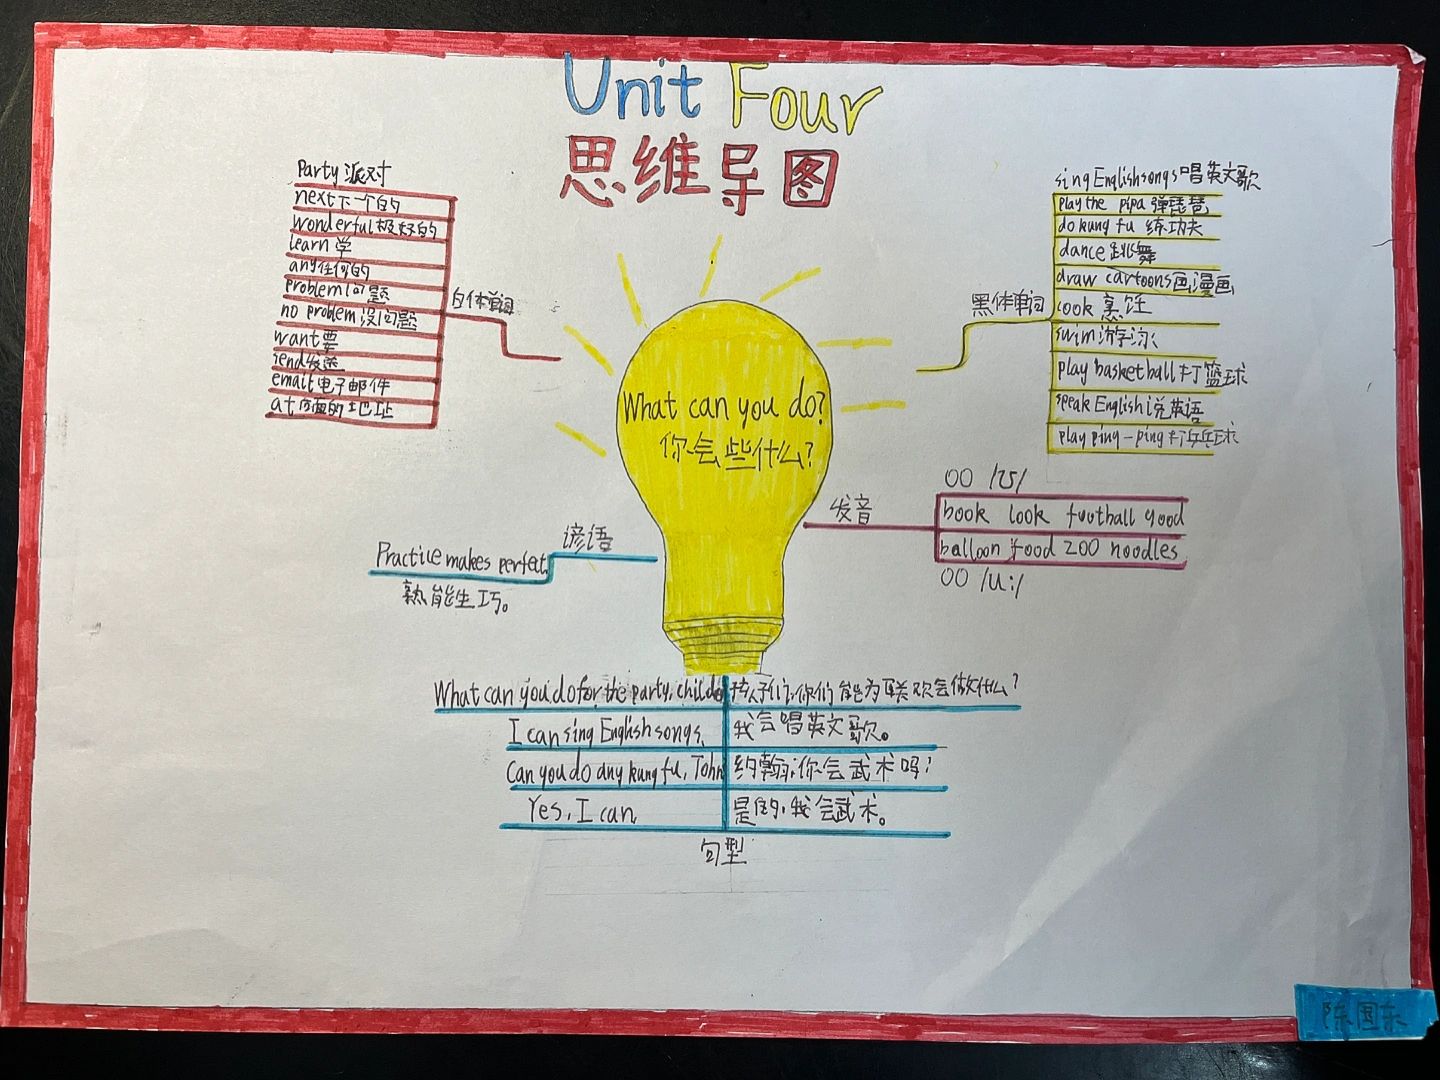 Unit Four
思维导图
Party 派对
next 下一个的
wonderful 极好的
learn 学
any 任何的
problem 问题
no problem 没问题
want 要
send 发送
email 电子邮件
at
白体单词
sing English songs 唱英文歌
play the pipa 弹琵琶
do kung fu 练功夫
dance 跳舞
draw cartoons 画漫画
cook 烹饪
swim 游泳
play basketball 打篮球
speak English 说英语
play ping-ping 打乒乓球
黑体单词
What can you do?
你会些什么?
谚语
Practice makes perfect.
熟能生巧。
发音
oo /ʊ/
book look football good
balloon food zoo noodles
oo /u:/
What can you do for the party, 孩子们,你们能为联欢会做什么?
I can sing English songs. 我会唱英文歌。
Can you do any kung fu, John 约翰,你会武术吗?
Yes, I can 是的,我会武术。
句型
陈国东